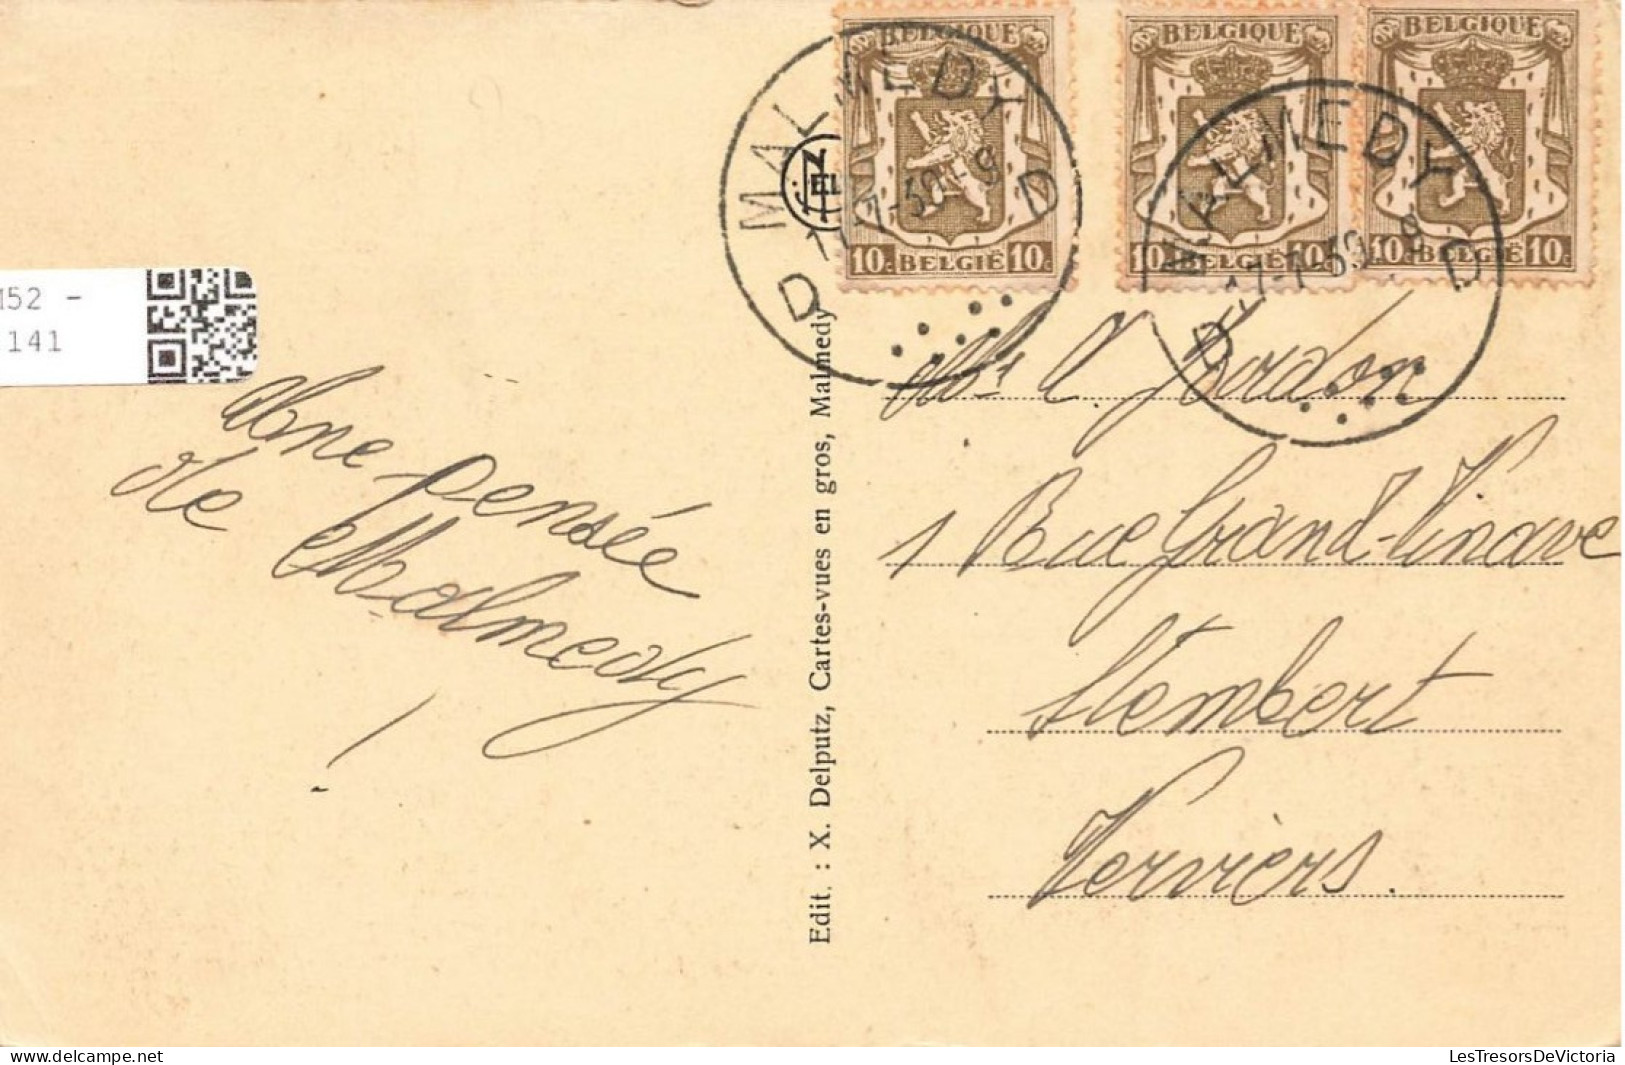 BELGIQUE
10c BELGIË 10c
BELGIQUE
10c BELGIË 10c
BELGIQUE
10c BELGIË 10c
MALMEDY
D D
MALMEDY
D 17-7-39 D
M52 -
141
Une pensée
de Malmedy
!
Edit. : X. Delputz, Cartes-vues en gros, Malmedy
Mr Jordon
1 Rue Grand-Vinave
Stembert
Verviers.
LesTresorsDeVictoria